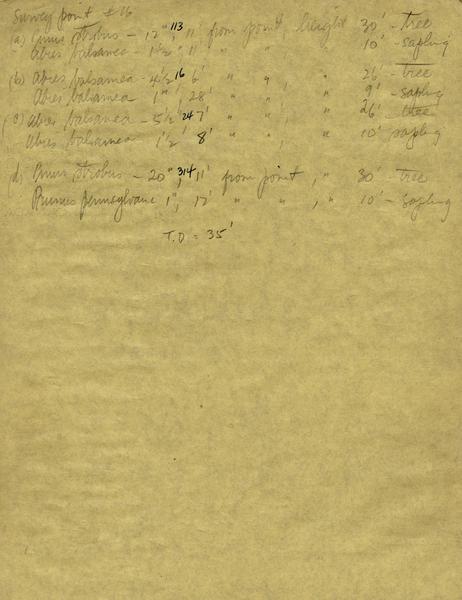 Survey point #16
(a) Pinus strobus - 12" 113, 11' from point, height 30' - tree
Abies balsamea - 1 1/2" 11' " " , " 10' - sapling
(b) Abies balsamea - 4 1/2 16 6' " " , " 26' - tree
Abies balsamea 1" 28' " " , " 9' - sapling
(c) Abies balsamea - 5 1/2 24 7' " " , " 26' tree
Abies balsamea 1 1/2' 8' " " , " 10' sapling
(d) Pinus strobus - 20" 314, 11' from point , " 30' - tree
Prunus pennsylvanic 1", 17' " " , " 10' - sapling
T.D = 35'